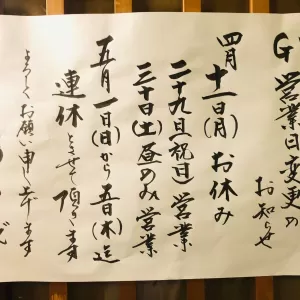 GW営業日変更の
お知らせ
四月十一日(月)お休み
二十九日(祝日)営業
三十日(土)昼のみ営業
五月一日(日)から五日(木)迄
連休とさせて頂きます
よろしくお願い申し上げます